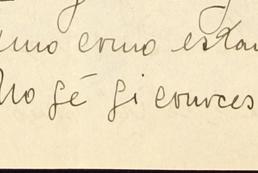 como estan
No sé si conoces